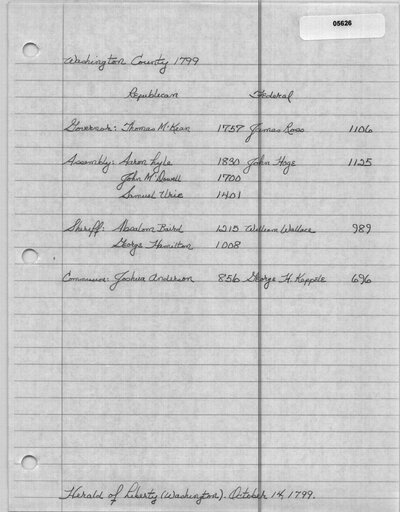 05626
Washington County 1799
Republican Federal
Governor: Thomas McKean 1757 James Ross 1106
Assembly: Aaron Lyle 1830 John Hoge 1125
John McDowell 1700
Samuel Urie 1401
Sheriff: Absalom Baird 1215 William Wallace 989
George Hamilton 1008
Joshua Anderson 856 George H. Keppele 696
Herald of Liberty (Washington). October 14, 1799.